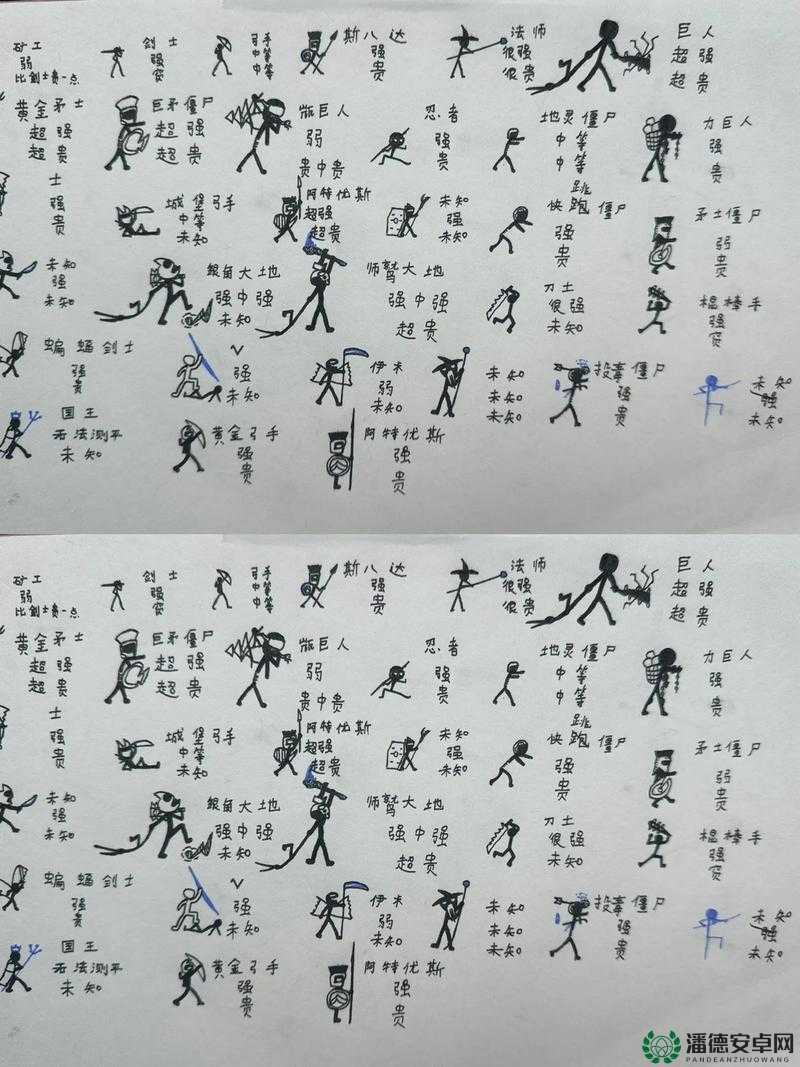 矿工
弱
比剑士贵一点
剑士
强
贫
弓手
中等
中等
斯八达
强
贵
法师
很强
很贵
巨人
超强
超贵
黄金矛士
超强
超贵
巨矛僵尸
超强
超贵
巨人
弱
贵中贵
忍者
强
贵
地灵僵尸
中等
中等
力巨人
强
贵
士
强
贵
城堡弓手
中等
未知
阿特优斯
超强
超贵
未知
强
未知
跳
快跑僵尸
强
贵
矛士僵尸
弱
贵
未知
强
未知
银角大地
强中强
未知
师鹫大地
强中强
超贵
刀士
很强
未知
棍棒手
强
贫
蝙蝠剑士
强
贵
V
强
未知
伊木
弱
未知
未知
未知
未知
投毒僵尸
强
贵
未知
强
未知
国王
无法测平
未知
黄金弓手
强
贵
阿特优斯
强
贵
矿工
弱
比剑士贵一点
剑士
强
贫
弓手
中等
中等
斯八达
强
贵
法师
很强
很贵
巨人
超强
超贵
黄金矛士
超强
超贵
巨矛僵尸
超强
超贵
巨人
弱
贵中贵
忍者
强
贵
地灵僵尸
中等
中等
力巨人
强
贵
士
强
贵
城堡弓手
中等
未知
阿特优斯
超强
超贵
未知
强
未知
跳
快跑僵尸
强
贵
矛士僵尸
弱
贵
未知
强
未知
银角大地
强中强
未知
师鹫大地
强中强
超贵
刀士
很强
未知
棍棒手
强
贫
蝙蝠剑士
强
贵
V
强
未知
伊木
弱
未知
未知
未知
未知
投毒僵尸
强
贵
未知
强
未知
国王
无法测平
未知
黄金弓手
强
贵
阿特优斯
强
贵
潘德安卓网
PANDEANZHUOWANG